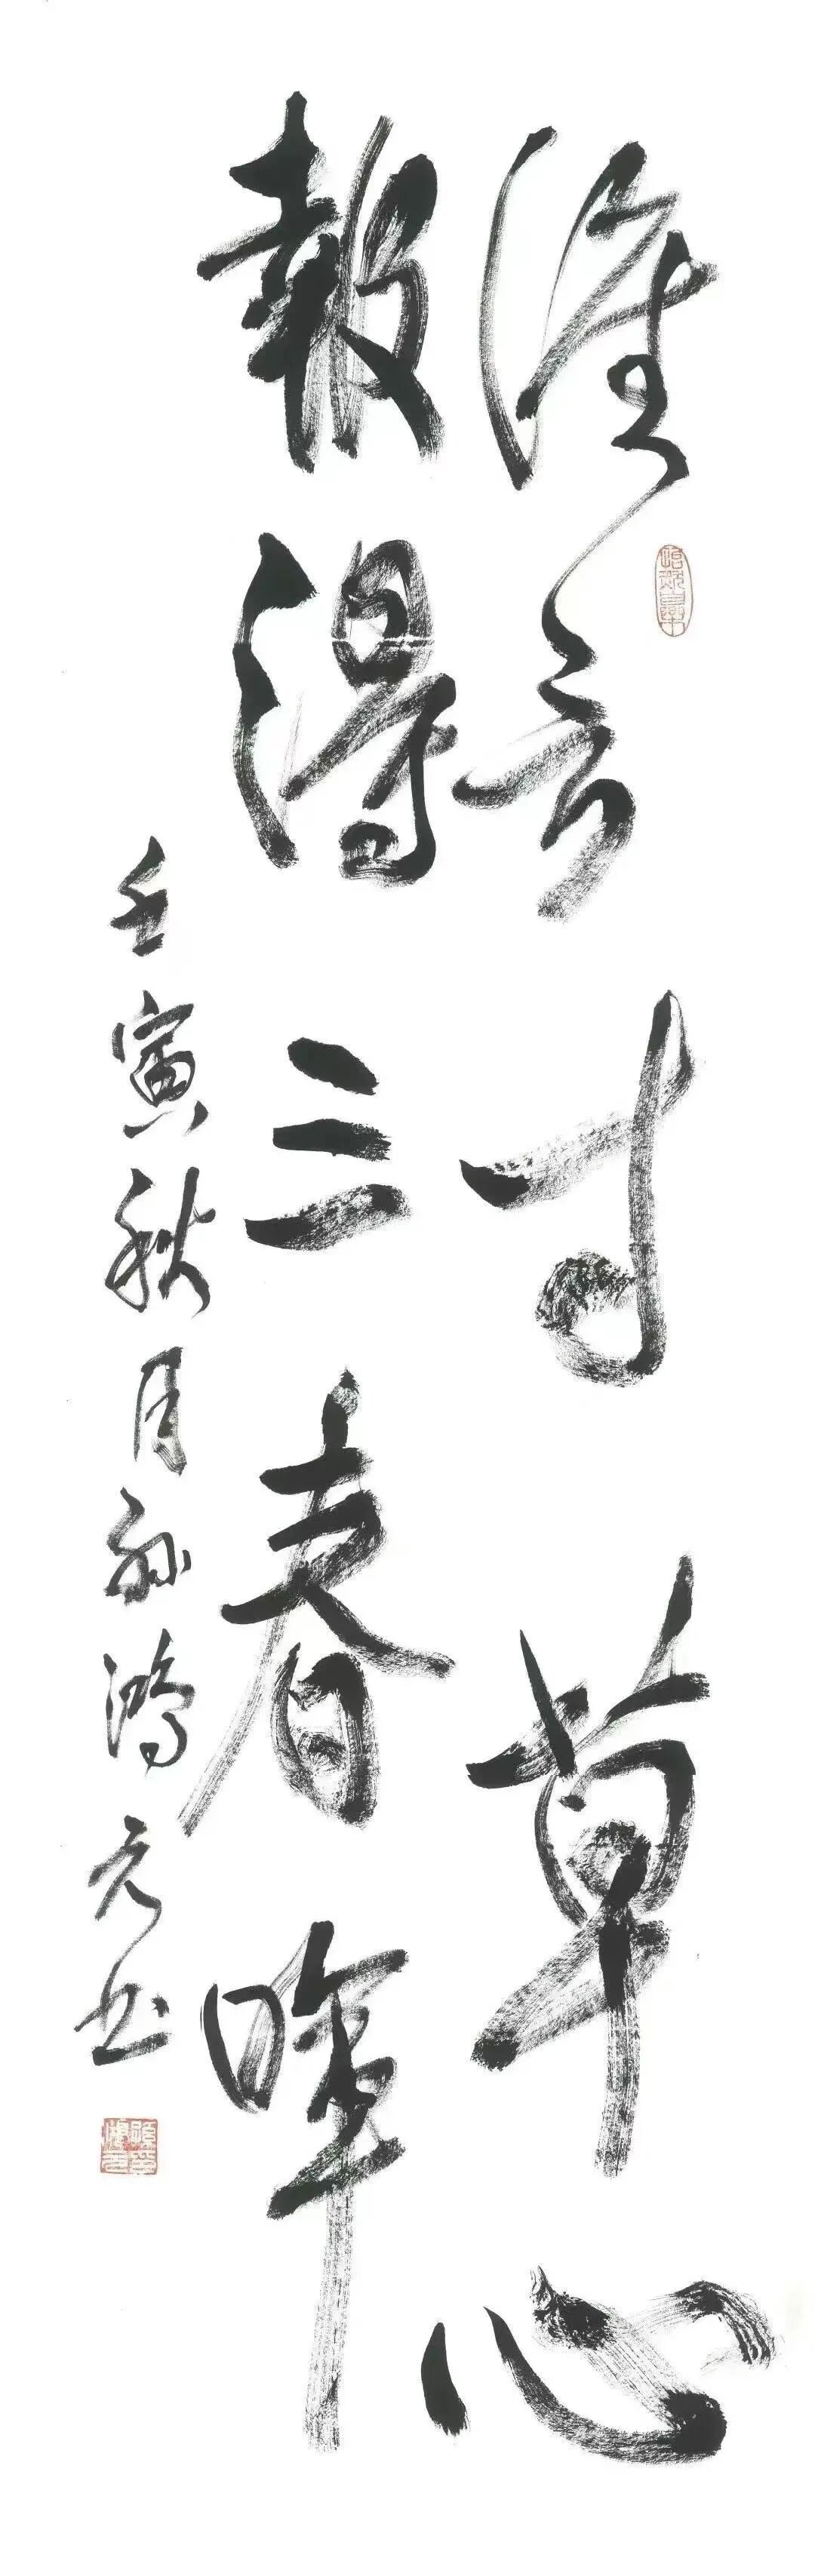 谁言寸草心
報得三春晖
壬寅秋月孙鸿元书